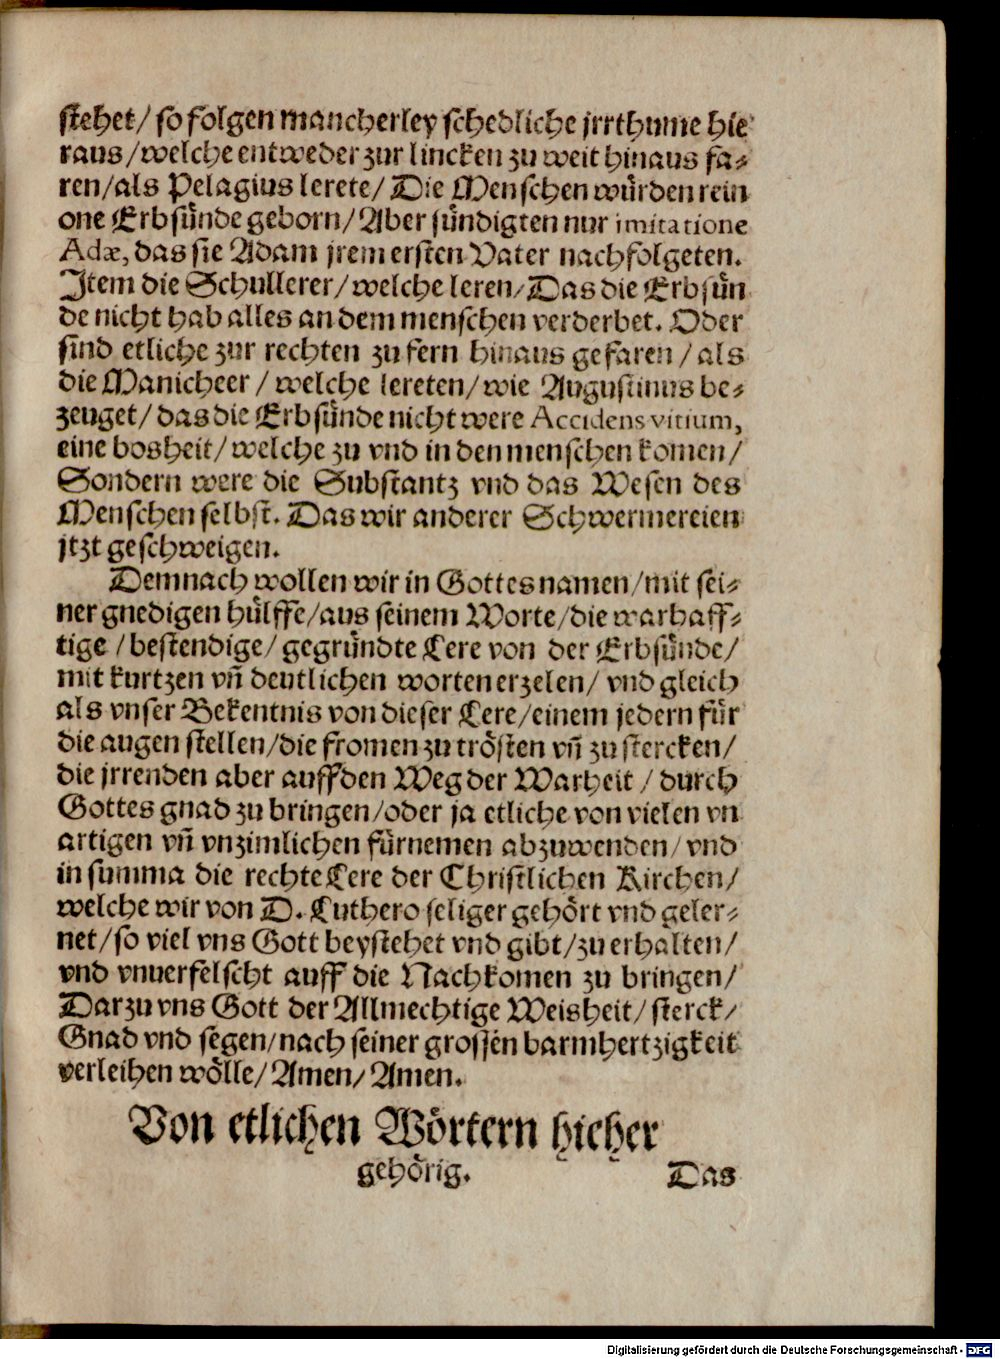 stehet/ so folgen mancherley schedliche jrrthume hie
raus/ welche entweder zur lincken zu weit hinaus fa-
ren/ als Pelagius lerete/ Die Menschen würden rein
one Erbsünde geborn/ Aber sündigten nur imitatione
Adæ, das sie Adam jrem ersten Vater nachfolgeten.
Jtem die Schullerer/ welche leren/ Das die Erbsün
de nicht hab alles an dem menschen verderbet. Oder
sind etliche zur rechten zu fern hinaus gefaren/ als
die Manicheer/ welche lereten/ wie Augustinus be-
zeuget/ das die Erbsünde nicht were Accidens vitium,
eine bosheit/ welche zu vnd in den menschen komen/
Sondern were die Substantz vnd das Wesen des
Menschen selbst. Das wir anderer Schwermereien
jtzt geschweigen.
Demnach wollen wir in Gottes namen/ mit sei-
ner gnedigen hülffe/ aus seinem Worte/ die warhaff-
tige/ bestendige/ gegründte Lere von der Erbsünde/
mit kurtzen vñ deutlichen worten erzelen/ vnd gleich
als vnser Bekentnis von dieser Lere/ einem jedern für
die augen stellen/ die fromen zu trösten vñ zu stercken/
die jrrenden aber auff den Weg der Warheit/ durch
Gottes gnad zu bringen/ oder ja etliche von vielen vn
artigen vñ vnzimlichen fürnemen abzuwenden/ vnd
in summa die rechte Lere der Christlichen Kirchen/
welche wir von D. Luthero seliger gehört vnd geler-
net/ so viel vns Gott beystehet vnd gibt/ zu erhalten/
vnd vnuerfelscht auff die Nachkomen zu bringen/
Darzu vns Gott der Allmechtige Weisheit/ sterck/
Gnad vnd segen/ nach seiner grossen barmhertzigkeit
verleihen wölle/ Amen/ Amen.
Von etlichen Wörtern hieher
gehörig.
Das
Digitalisierung gefördert durch die Deutsche Forschungsgemeinschaft - DFG